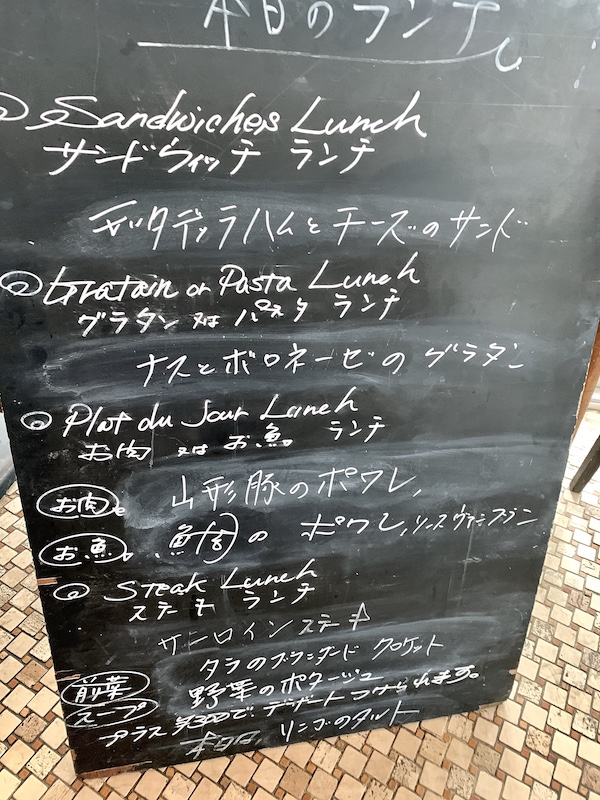 本日のランチ
Sandwiches Lunch
サンドウィッチ ランチ
モッタデッラハムとチーズのサンド
Gratain or Pasta Lunch
グラタン 又は パスタ ランチ
ナスとボロネーゼのグラタン
Plat du Jour Lunch
お肉 又は お魚。 ランチ
お肉。 山形豚のポワレ,
お魚。 鯛のポワレ,ソースヴァンブラン
Steak Lunch
ステーキ ランチ
サーロインステーキ
前菜 タラのブランダード クロケット
スープ 野菜のポタージュ
プラス ¥300で、デザートつけられます。
本日 リンゴのタルト